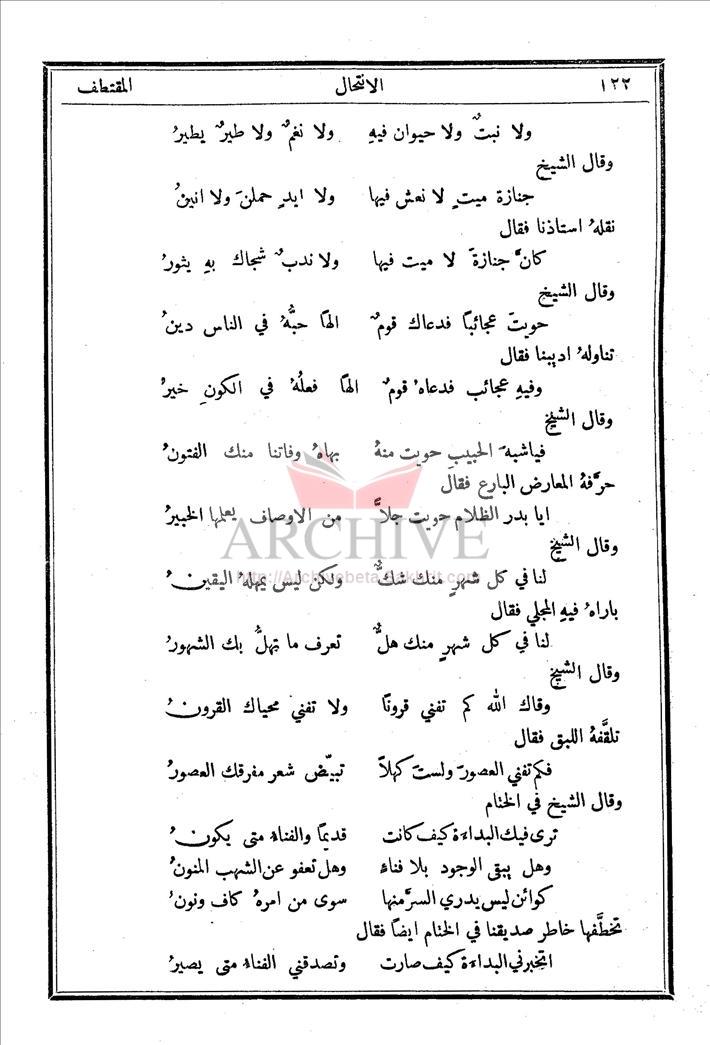 ١٢٢ الانتحال المقتطف
ولا نبتٌ ولا حيوان فيهِ ولا نغمٌ ولا طيرٌ يطيرُ
وقال الشيخ
جنازة ميتٍ لا نعش فيها ولا ايدٍ حملنَ ولا انينُ
نقلهُ استاذنا فقال
كانَّ جنازةً لا ميت فيها ولا ندبٌ شجاك بهِ يثورُ
وقال الشيخ
حويتَ عجائبًا فدعاك قومٌ الهًا حبُّهُ في الناس دينُ
تناولهُ اديبنا فقال
وفيهِ عجائب فدعاهُ قومٌ الهًا فعلُهُ في الكونِ خيرُ
وقال الشيخ
فياشبهَ الحبيبِ حويت منهُ بهاهُ وفاتنا منك الفتونُ
حرَّفهُ المعارض البارع فقال
ايا بدر الظلام حويت جلاًّ من الاوصاف يعلمها الخبيرُ
وقال الشيخ
لنا في كل شهرٍ منك شكٌّ ولكن ليس يمهلهُ اليقينُ
باراهُ فيهِ المجلي فقال
لنا في كل شهرٍ منك هلٌّ تعرف ما تهلُّ بك الشهورُ
وقال الشيخ
وقاك الله كم تفني قرونًا ولا تفني محياك القرونُ
تلقَّفهُ اللبق فقال
فكم تفني العصورَ ولستَ كهلاً تبيّض شعر مفرقك العصورُ
وقال الشيخ في الختام
ترى فيك البداءة كيف كانت قديمًا والفناءُ متى يكونُ
وهل يبقى الوجود بلا فناءً وهل تعفو عن الشهب المنونُ
كوائن ليس يدري السرَّ منها سوى من امرهُ كاف ونونُ
تخطَّفها خاطر صديقنا في الختام ايضًا فقال
اتخبرني البداءة كيف صارت وتصدقني الفناءُ متى يصيرُ
ARCHIVE
http://Archivebeta.Sakhrit.com